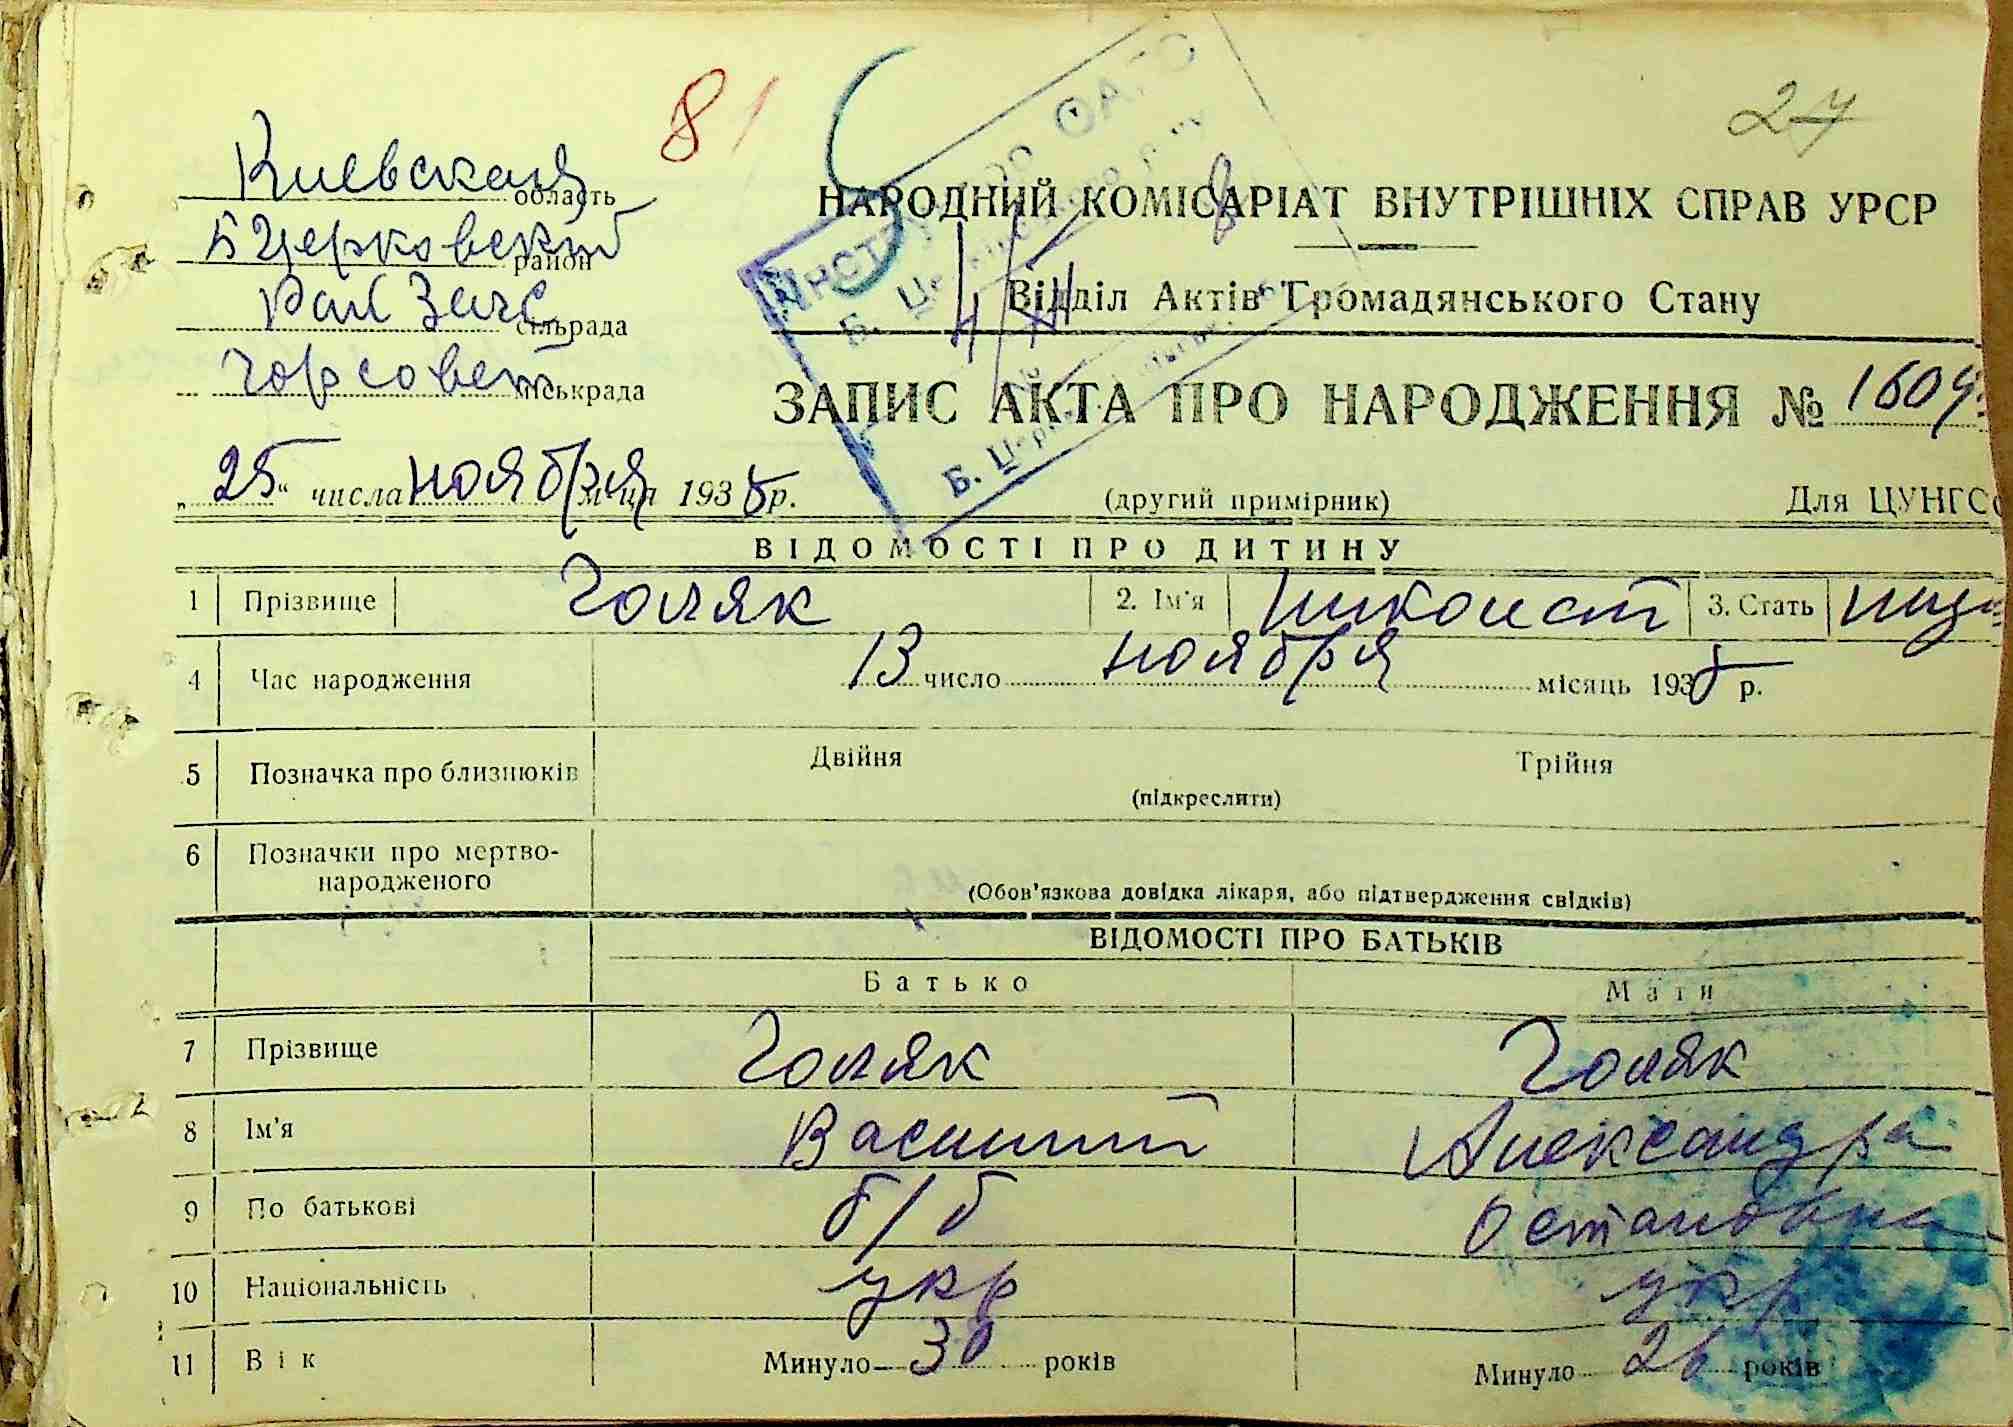 81
27
Киевская область
Б Церковский район
Рай Загс сільрада
горсовет міськрада
НАРОДНИЙ КОМІСАРІАТ ВНУТРІШНІХ СПРАВ УРСР
Відділ Актів Громадянського Стану
ЗАПИС АКТА ПРО НАРОДЖЕННЯ № 1604
„25“ числа ноября м-ця 1935 р.
(другий примірник)
Для ЦУНГО
ВІДОМОСТІ ПРО ДИТИНУ
1 Прізвище Голяк 2. Ім'я 3. Стать
4 Час народження 13 число ноября місяць 1935 р.
5 Позначка про близнюків Двійня Трійня
(підкреслити)
6 Позначки про мертво-
народженого
(Обов'язкова довідка лікаря, або підтвердження свідків)
ВІДОМОСТІ ПРО БАТЬКІВ
Батько Мати
7 Прізвище Голяк Голяк
8 Ім'я Василий Александра
9 По батькові б/б Остаповна
10 Національність укр укр
11 Вік Минуло 30 років Минуло 26 років